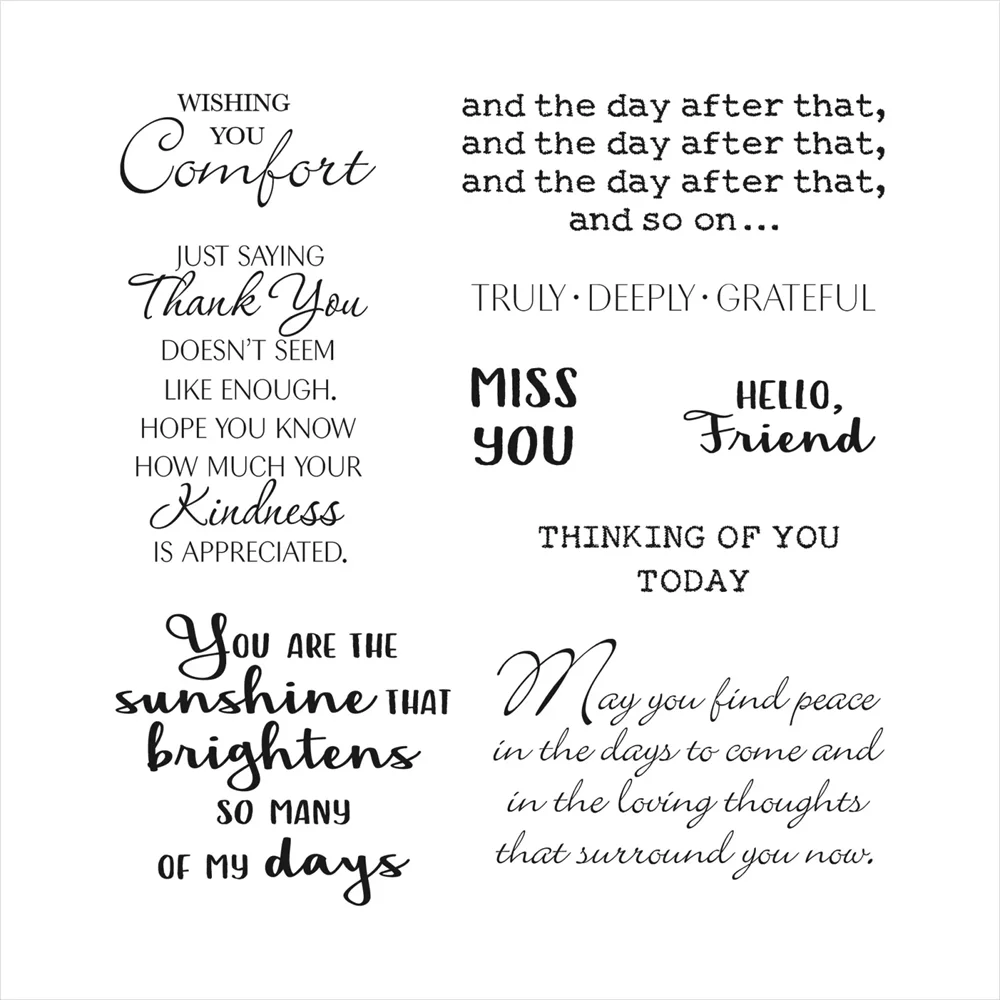 WISHING
YOU
Comfort
JUST SAYING
Thank You
DOESN'T SEEM
LIKE ENOUGH.
HOPE YOU KNOW
HOW MUCH YOUR
Kindness
IS APPRECIATED.
You ARE THE
sunshine THAT
brightens
SO MANY
OF MY days
and the day after that,
and the day after that,
and the day after that,
and so on...
TRULY · DEEPLY · GRATEFUL
MISS
YOU
HELLO,
Friend
THINKING OF YOU
TODAY
May you find peace
in the days to come and
in the loving thoughts
that surround you now.